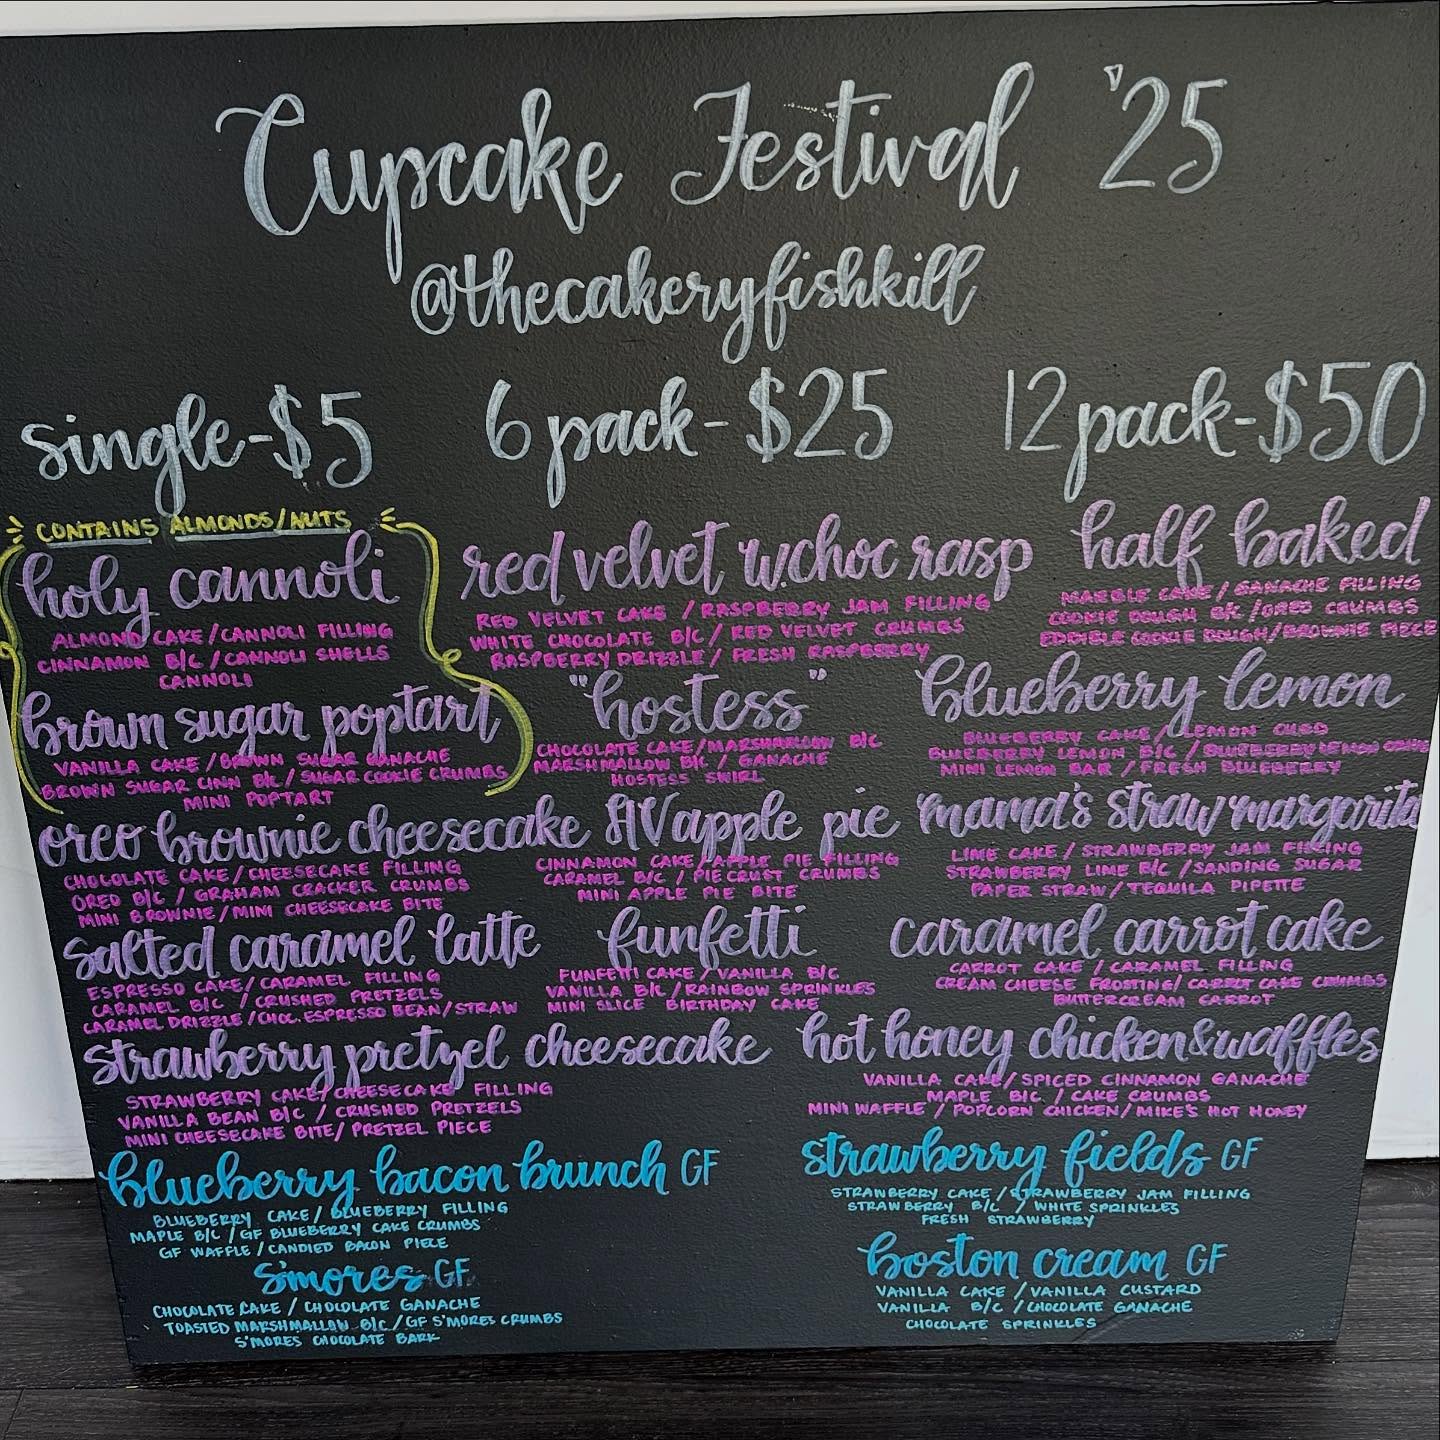 Cupcake Festival '25
@thecakeryfishkill
single-$5
6 pack-$25
12 pack-$50
CONTAINS ALMONDS/NUTS
holy cannoli
ALMOND CAKE/CANNOLI FILLING
CINNAMON B/C/CANNOLI SHELLS
CANNOLI
brown sugar poptart
VANILLA CAKE/BROWN SUGAR GANACHE
BROWN SUGAR CINN B/C/SUGAR COOKIE CRUMBS
MINI POPTART
red velvet w.choc rasp
RED VELVET CAKE/RASPBERRY JAM FILLING
WHITE CHOCOLATE B/C/RED VELVET CRUMBS
RASPBERRY DRIZZLE/FRESH RASPBERRY
"hostess"
CHOCOLATE CAKE/MARSHMALLOW B/C
MARSHMALLOW B/C/GANACHE
HOSTESS SWIRL
half baked
MARBLE CAKE/GANACHE FILLING
COOKIE DOUGH B/C/OREO CRUMBS
EDDIBLE COOKIE DOUGH/BROWNIE PIECE
blueberry lemon
BLUEBERRY CAKE/LEMON CURD
BLUEBERRY LEMON B/C/BLUEBERRY LEMON
MINI LEMON BAR/FRESH BLUEBERRY
oreo brownie cheesecake
CHOCOLATE CAKE/CHEESECAKE FILLING
OREO B/C/GRAHAM CRACKER CRUMBS
MINI BROWNIE/MINI CHEESECAKE BITE
HV apple pie
CINNAMON CAKE/APPLE PIE FILLING
CARAMEL B/C/PIE CRUST CRUMBS
MINI APPLE PIE BITE
mama's straw margarita
LIME CAKE/STRAWBERRY JAM FILLING
STRAWBERRY LIME B/C/SANDING SUGAR
PAPER STRAW/TEQUILA PIPETTE
salted caramel latte
ESPRESSO CAKE/CARAMEL FILLING
CARAMEL B/C/CRUSHED PRETZELS
CARAMEL DRIZZLE/CHOC. ESPRESSO BEAN/STRAW
funfetti
FUNFETTI CAKE/VANILLA B/C
VANILLA B/C/RAINBOW SPRINKLES
MINI SLICE BIRTHDAY CAKE
caramel carrot cake
CARROT CAKE/CARAMEL FILLING
CREAM CHEESE FROSTING/CARROT CAKE CRUMBS
BUTTERCREAM CARROT
strawberry pretzel cheesecake
STRAWBERRY CAKE/CHEESECAKE FILLING
VANILLA BEAN B/C/CRUSHED PRETZELS
MINI CHEESECAKE BITE/PRETZEL PIECE
hot honey chicken&waffles
VANILLA CAKE/SPICED CINNAMON GANACHE
MAPLE B/C/CAKE CRUMBS
MINI WAFFLE/POPCORN CHICKEN/MIKE'S HOT HONEY
blueberry bacon brunch GF
BLUEBERRY CAKE/BLUEBERRY FILLING
MAPLE B/C/GF BLUEBERRY CAKE CRUMBS
GF WAFFLE/CANDIED BACON PIECE
s'mores GF
CHOCOLATE CAKE/CHOCOLATE GANACHE
TOASTED MARSHMALLOW B/C/GF S'MORES CRUMBS
S'MORES CHOCOLATE BARK
strawberry fields GF
STRAWBERRY CAKE/STRAWBERRY JAM FILLING
STRAWBERRY B/C/WHITE SPRINKLES
FRESH STRAWBERRY
boston cream GF
VANILLA CAKE/VANILLA CUSTARD
VANILLA B/C/CHOCOLATE GANACHE
CHOCOLATE SPRINKLES